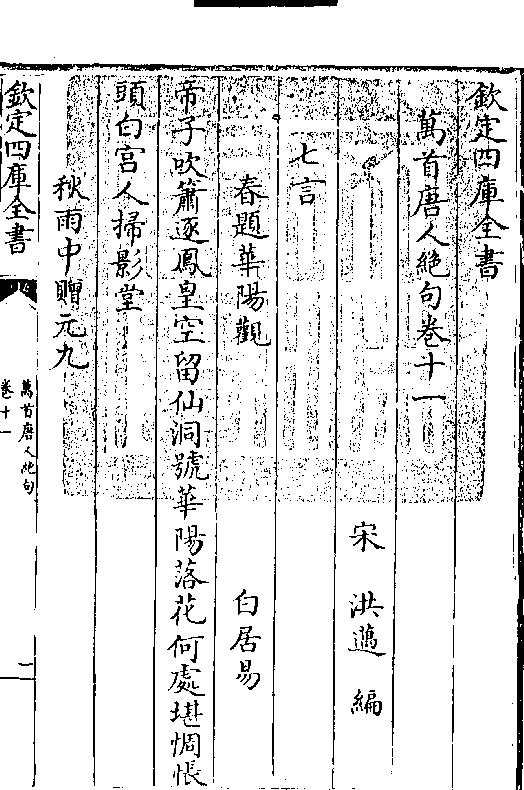 欽定四庫全書
萬首唐人絕句卷十一
宋 洪邁 編
七言
春題華陽觀 白居易
帝子吹簫逐鳳皇空留仙洞號華陽落花何處堪惆悵
頭白宮人掃影堂
秋雨中贈元九
欽定四庫全書
萬首唐人絕句
卷十一
一